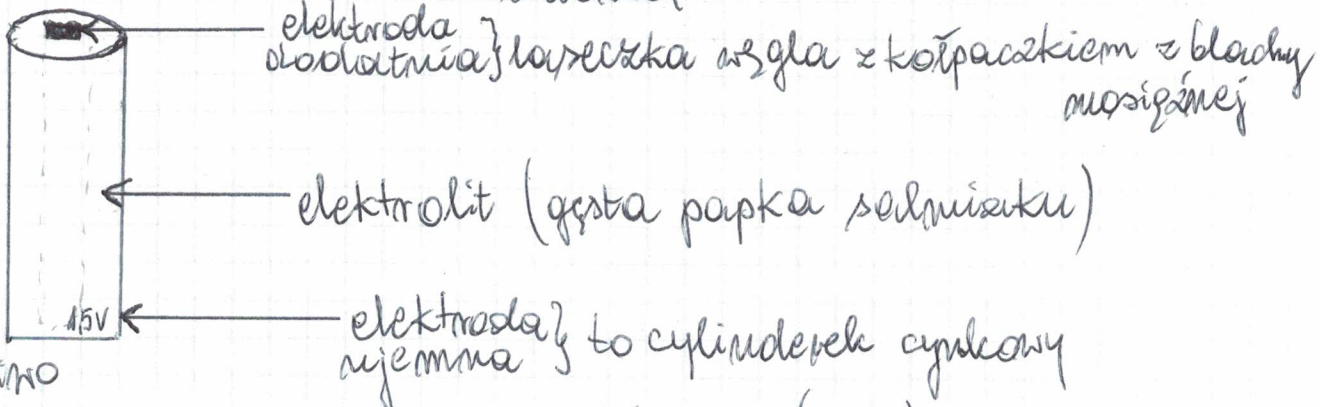 elektroda
dodatnia } laseczka węgla z kołpaczkiem z blachy
mosiężnej
elektrolit (gęsta papka salmiaku)
1,5V
elektroda }
ujemna } to cylinderek cynkowy